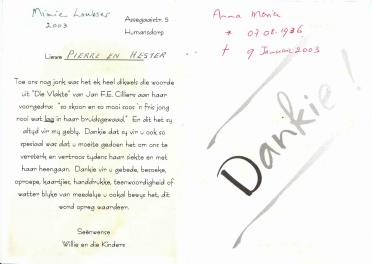 Minnie Lourens
2003
Assegaaistr. 5
Humansdorp
Liewe PIERRE EN HESTER
Toe ons nog jonk was het ek heel dikwels die woorde
uit "Die Vlakte" van Jan F.E. Cilliers aan haar
voorgedra: "so skoon en so mooi soos 'n fris jong
nooi wat lag in haar bruidsgewaad." En dit het sy
altyd vir my gebly. Dankie dat sy vir u ook so
spesiaal was dat u moeite gedoen het om ons te
versterk en vertroos tydens haar siekte en met
haar heengaan. Dankie vir u gebede, besoeke,
oproepe, kaartjies, handdrukke, teenwoordigheid of
watter blyke van meedelye u ookal bewys het, dit
word opreg waardeer.
Seënwense
Willie en die Kinders
Anna Maria
* 07.08.1936
† 9 Januarie 2003
Dankie!